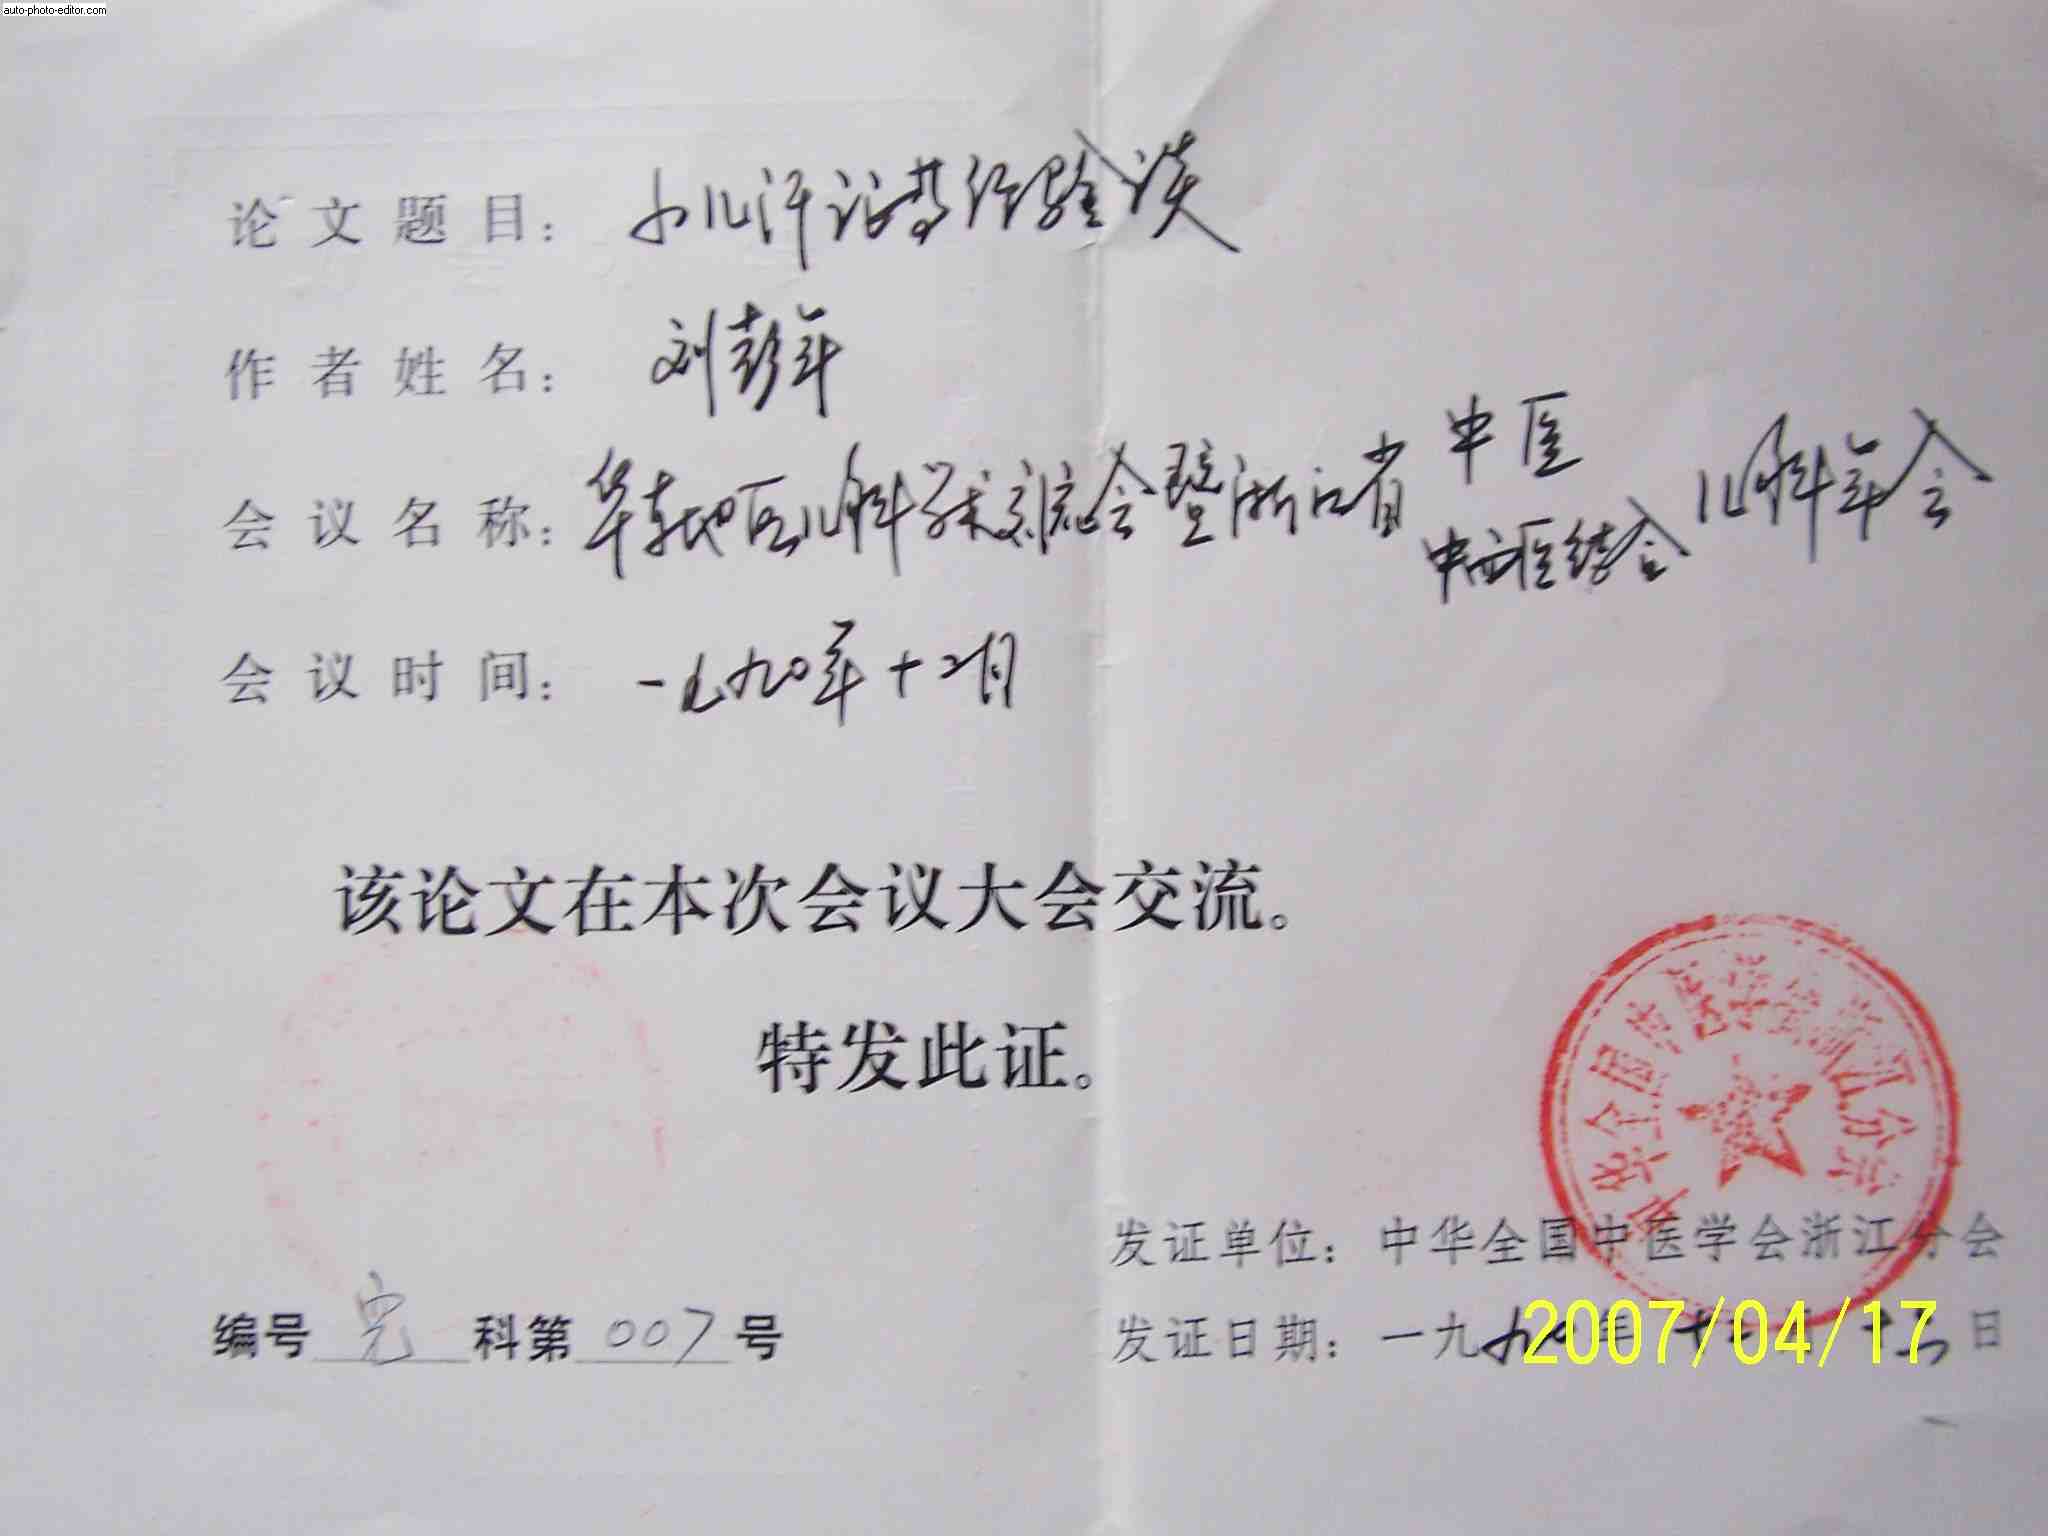 auto-photo-editor.com
论文题目：小儿汗证药经验谈
作者姓名：刘彭年
会议名称：华东地区儿科学术交流会暨浙江省中医 中西医结合儿科年会
会议时间：一九九〇年十二月
该论文在本次会议大会交流。
特发此证。
中华全国中医学会浙江分会
发证单位：中华全国中医学会浙江分会
编号 完 科第 007 号
发证日期：一九九〇年十 日
2007/04/17